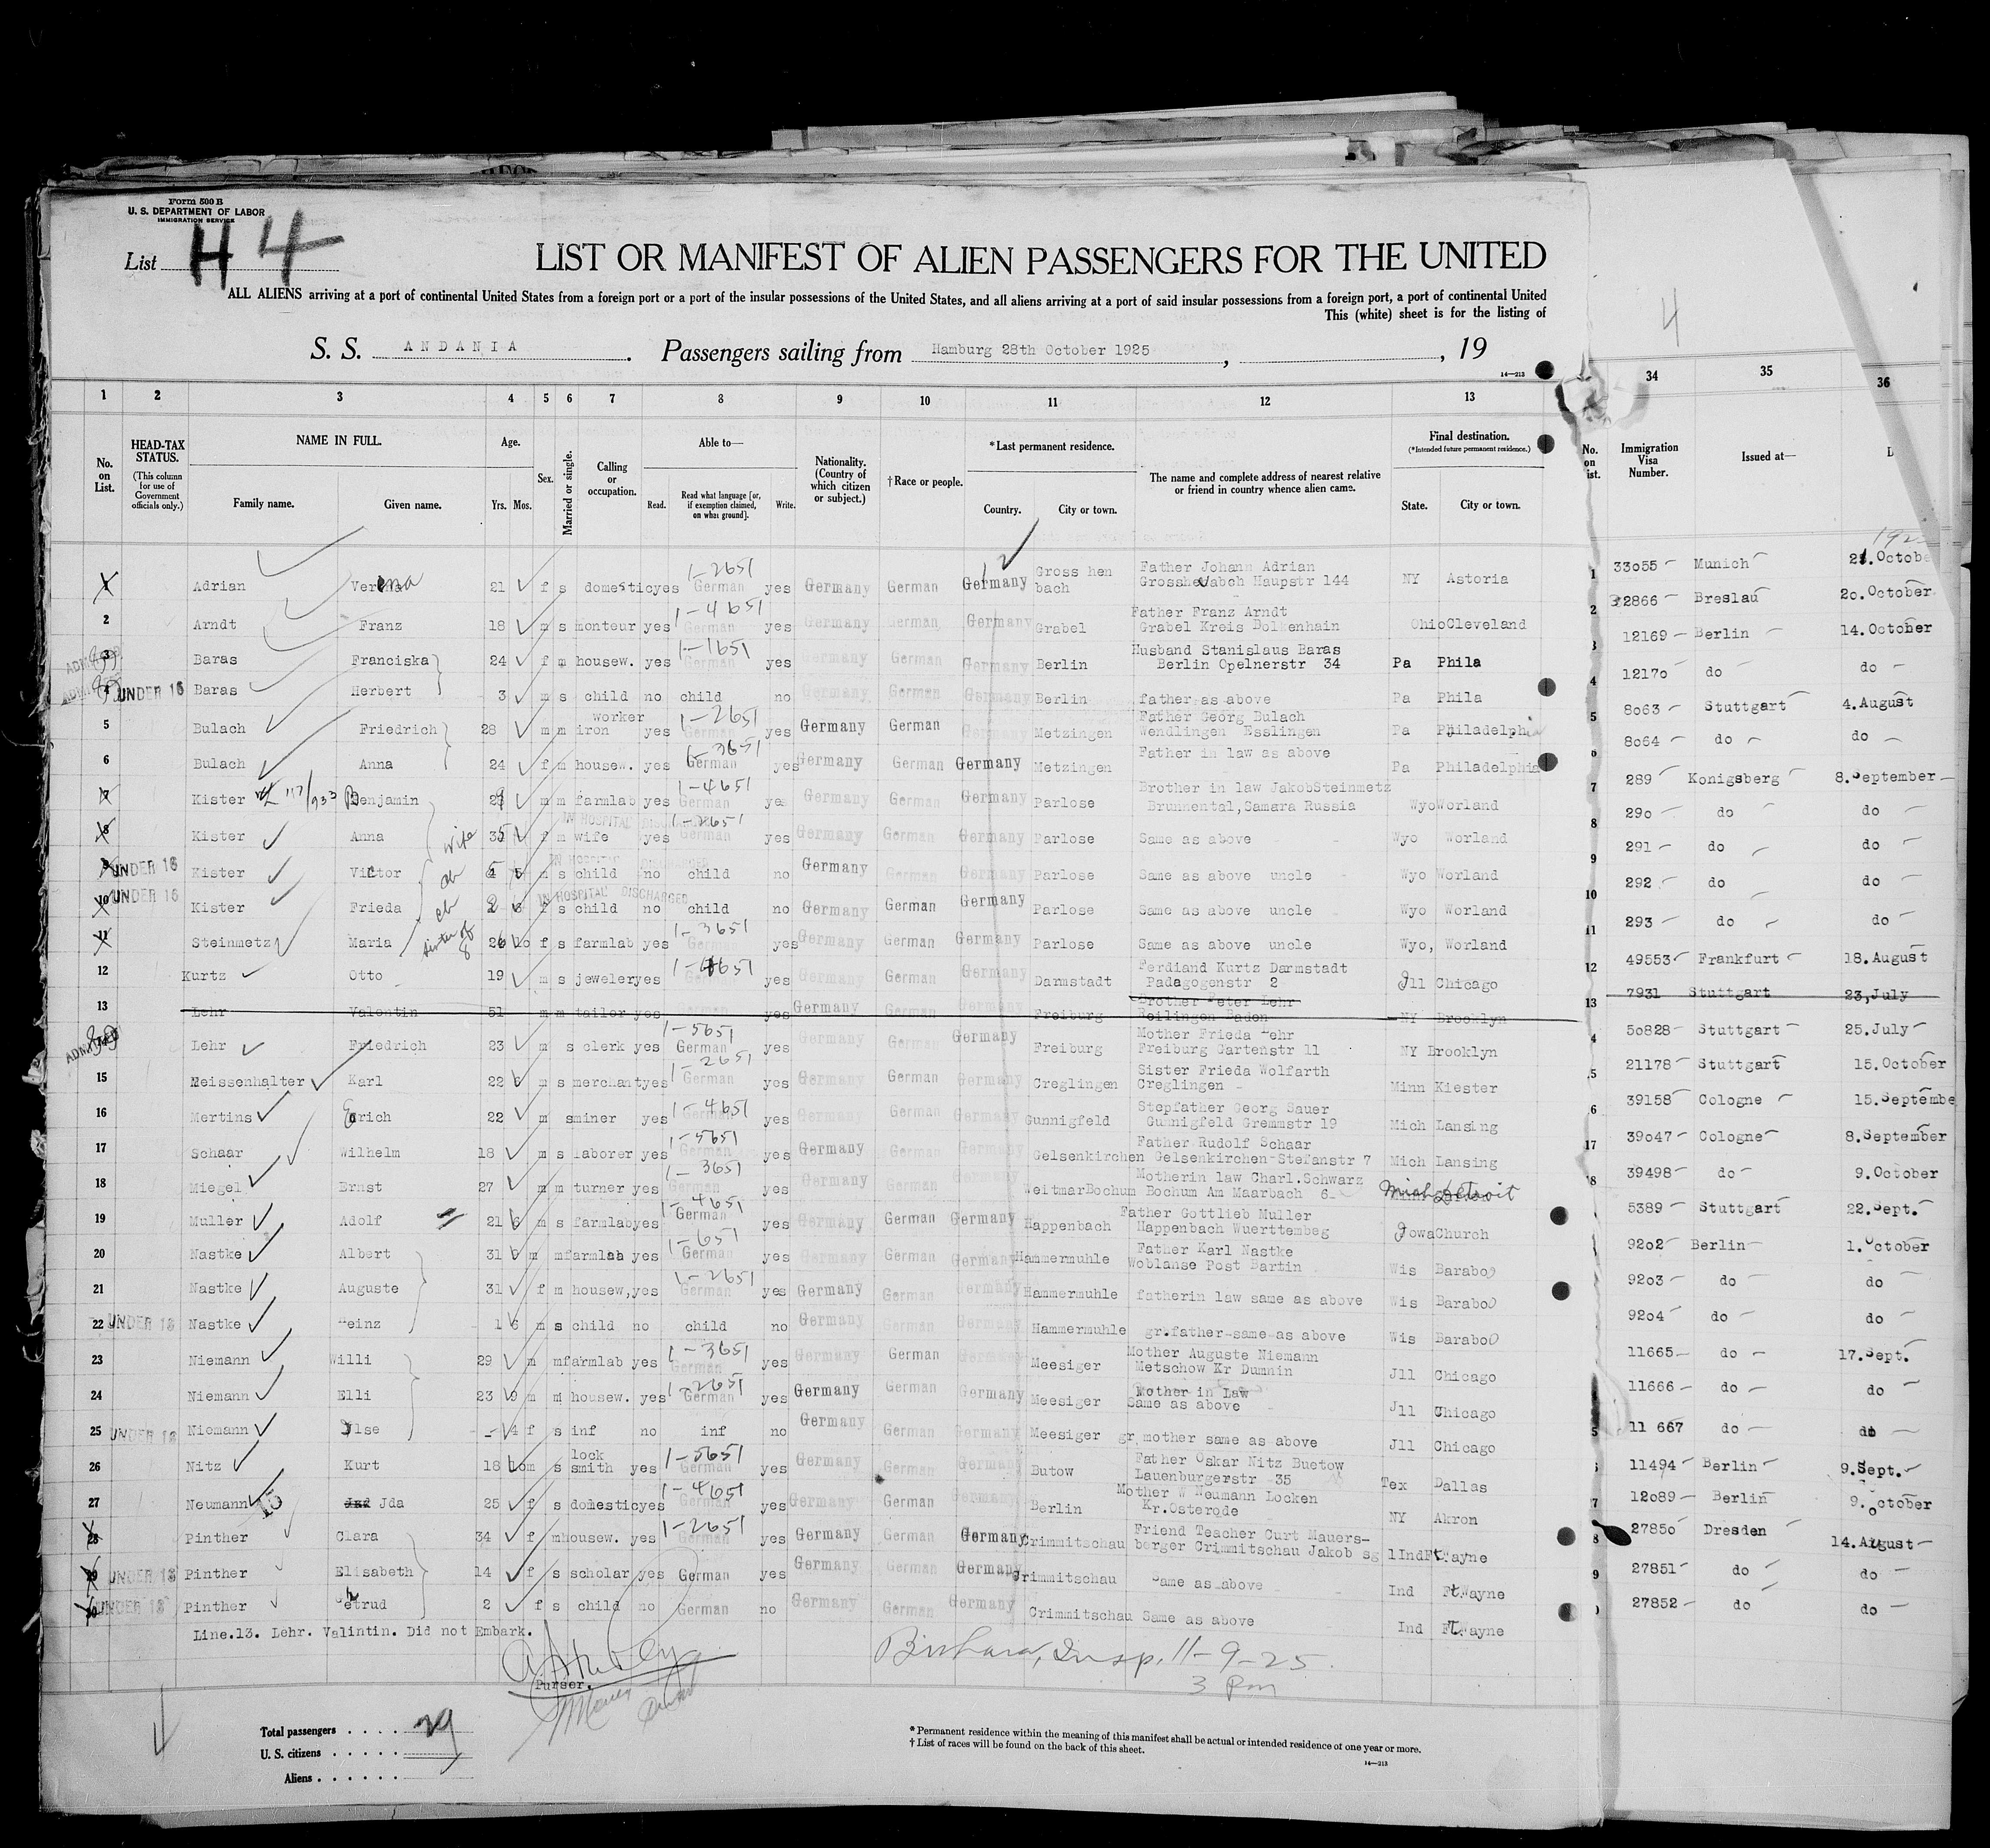 Form 500 B
U. S. DEPARTMENT OF LABOR
IMMIGRATION SERVICE
List H 4
LIST OR MANIFEST OF ALIEN PASSENGERS FOR THE UNITED
ALL ALIENS arriving at a port of continental United States from a foreign port or a port of the insular possessions of the United States, and all aliens arriving at a port of said insular possessions from a foreign port, a port of continental United
This (white) sheet is for the listing of
4
S. S. ANDANIA. Passengers sailing from Hamburg 28th October 1925, , 19
14—213
1 2 3 4 5 6 7 8 9 10 11 12 13 34 35 36
No. on List.
HEAD-TAX STATUS.
(This column for use of Government officials only.)
NAME IN FULL.
Family name. Given name.
Age.
Yrs. Mos.
Sex.
Married or single.
Calling or occupation.
Able to—
Read. Read what language [or, if exemption claimed, on what ground]. Write.
Nationality. (Country of which citizen or subject.)
†Race or people.
*Last permanent residence.
Country. City or town.
The name and complete address of nearest relative or friend in country whence alien came.
Final destination.
(*Intended future permanent residence.)
State. City or town.
No. on ist.
Immigration Visa Number.
Issued at—
D
192
1 Adrian Verena 21 f s domestic yes 1-2651 German yes Germany German Germany Gross hen bach Father Johann Adrian Grosshevabch Haupstr 144 NY Astoria 1 33055 Munich 21. Octobe
2 Arndt Franz 18 m s monteur yes 1-4651 German yes Germany German Germany Grabel Father Franz Arndt Grabel Kreis Bolkenhain Ohio Cleveland 2 32866 Breslau 20. October
3 Baras Franciska 24 f m housew. yes 1-1651 German yes Germany German Germany Berlin Husband Stanislaus Baras Berlin Opelnerstr 34 Pa Phila 3 12169 Berlin 14. October
4 UNDER 16 Baras Herbert 3 m s child no child no Germany German Germany Berlin father as above Pa Phila 4 12170 do do
5 Bulach Friedrich 28 m m iron worker yes 1-2651 German yes Germany German Metzingen Father Georg Bulach Wendlingen Esslingen Pa Philadelphia 5 8063 Stuttgart 4. August
6 Bulach Anna 24 f m housew. yes 1-3651 German yes Germany German Germany Metzingen Father in law as above Pa Philadelphia 6 8064 do do
7 Kister 117/933 Benjamin 29 m m farmlab yes 1-4651 German yes Germany German Germany Parlose Brother in law JakobSteinmetz Brunnental,Samara Russia Wyo Worland 7 289 Konigsberg 8. September
8 Kister Anna wife 35 f m wife yes 1-2651 German yes Germany German Germany Parlose Same as above Wyo Worland 8 290 do do
IN HOSPITAL DISCHARGED
9 UNDER 16 Kister Victor ch m s child no child no Germany German Germany Parlose Same as above uncle Wyo Worland 9 291 do do
IN HOSPITAL DISCHARGED
10 UNDER 16 Kister Frieda ch 2 f s child no child no Germany German Germany Parlose Same as above uncle Wyo Worland 10 292 do do
11 Steinmetz Maria sister of 8 26 10 f s farmlab yes 1-3651 German yes Germany German Germany Parlose Same as above uncle Wyo, Worland 11 293 do do
12 Kurtz Otto 19 m s jeweler yes 1-4651 German yes Germany German Germany Darmstadt Ferdiand Kurtz Darmstadt Padagogonstr 2 Jll Chicago 12 49553 Frankfurt 18. August
13 Lehr Valentin 51 m m tailor yes yes Germany German Germany Freiburg Brother Peter Lehr Reilingen Baden NY Brooklyn 13 7931 Stuttgart 23,July
Lehr Friedrich 23 m s clerk yes 1-5651 German yes Germany German Germany Freiburg Mother Frieda Lehr Freiburg Gartenstr 11 NY Brooklyn 4 50828 Stuttgart 25. July
15 Meissenhalter Karl 22 6 m s merchant yes 1-2651 German yes Germany German Germany Creglingen Sister Frieda Wolfarth Creglingen Minn Kiester 5 21178 Stuttgart 15. October
16 Mertins Erich 22 m s miner yes 1-4651 German yes Germany German Germany Gunnigfeld Stepfather Georg Sauer Gunnigfeld Gremmstr 19 Mich Lansing 6 39158 Cologne 15. Septembe
17 Schaar Wilhelm 18 m s laborer yes 1-5651 German yes Germany German Germany Gelsenkirchen Father Rudolf Schaar Gelsenkirchen-Stefanstr 7 Mich Lansing 17 39047 Cologne 8. September
18 Miegel Ernst 27 m m turner yes 1-3651 German yes Germany German Germany WeitmarBochum Motherin law Charl.Schwarz Bochum Am Maarbach 6 Mich Detroit 18 39498 do 9. October
19 Muller Adolf 21 6 m s farmlab yes 1-4651 German yes Germany German Germany Happenbach Father Gottlieb Muller Happenbach Wuerttembeg Jowa Church 5389 Stuttgart 22. Sept.
20 Nastke Albert 31 m m farmlab yes 1-651 German yes Germany German Germany Hammermuhle Father Karl Nastke Woblanse Post Bartin Wis Baraboo 9202 Berlin 1. October
21 Nastke Auguste 31 f m housew, yes 1-2651 German yes Germany German Germany Hammermuhle fatherin law same as above Wis Baraboo 9203 do do
22 UNDER 16 Nastke Heinz 1 6 m s child no child no Germany German Germany Hammermuhle gr.father same as above Wis Baraboo 9204 do do
23 Niemann Willi 29 m m farmlab yes 1-3651 German yes Germany German Germany Meesiger Mother Auguste Niemann Metschow Kr Dummin Jll Chicago 11665 do 17. Sept.
24 Niemann Elli 23 9 m m housew. yes 1-2651 German yes Germany German Germany Meesiger Mother in Law Same as above Jll Chicago 11666 do do
25 UNDER 16 Niemann Ilse - 4 f s inf no inf no Germany German Germany Meesiger gr mother same as above Jll Chicago 11 667 do do
26 Nitz Kurt 18 10 m s lock smith yes 1-5651 German yes Germany German Germany Butow Father Oskar Nitz Buetow Lauenburgerstr 35 Tex Dallas 11494 Berlin 9. Sept.
27 Neumann Jda 25 f s domestic yes 1-4651 German yes Germany German Germany Berlin Mother W Neumann Locken Kr.Osterode NY Akron 7 12089 Berlin 9. October
28 Pinther Clara 34 f m housew. yes 1-2651 German yes Germany German Germany Crimmitschau Friend Teacher Curt Mauers- berger Crimmitschau Jakob sg 1 Ind Ft.Wayne 8 27850 Dresden 14. August
29 UNDER 16 Pinther Elisabeth 14 f s scholar yes German yes Germany German Germany Crimmitschau Same as above Ind Ft.Wayne 9 27851 do do
30 UNDER 16 Pinther 2 f s child no German no Germany German Germany Crimmitschau Same as above Ind Ft.Wayne 27852 do do
Line.13. Lehr. Valintin. Did not Embark.
Purser.
Insp. 11-9-25
3 Pm
Total passengers . . . . 29
U. S. citizens . . . . .
Aliens . . . . . .
* Permanent residence within the meaning of this manifest shall be actual or intended residence of one year or more.
† List of races will be found on the back of this sheet.
14—213